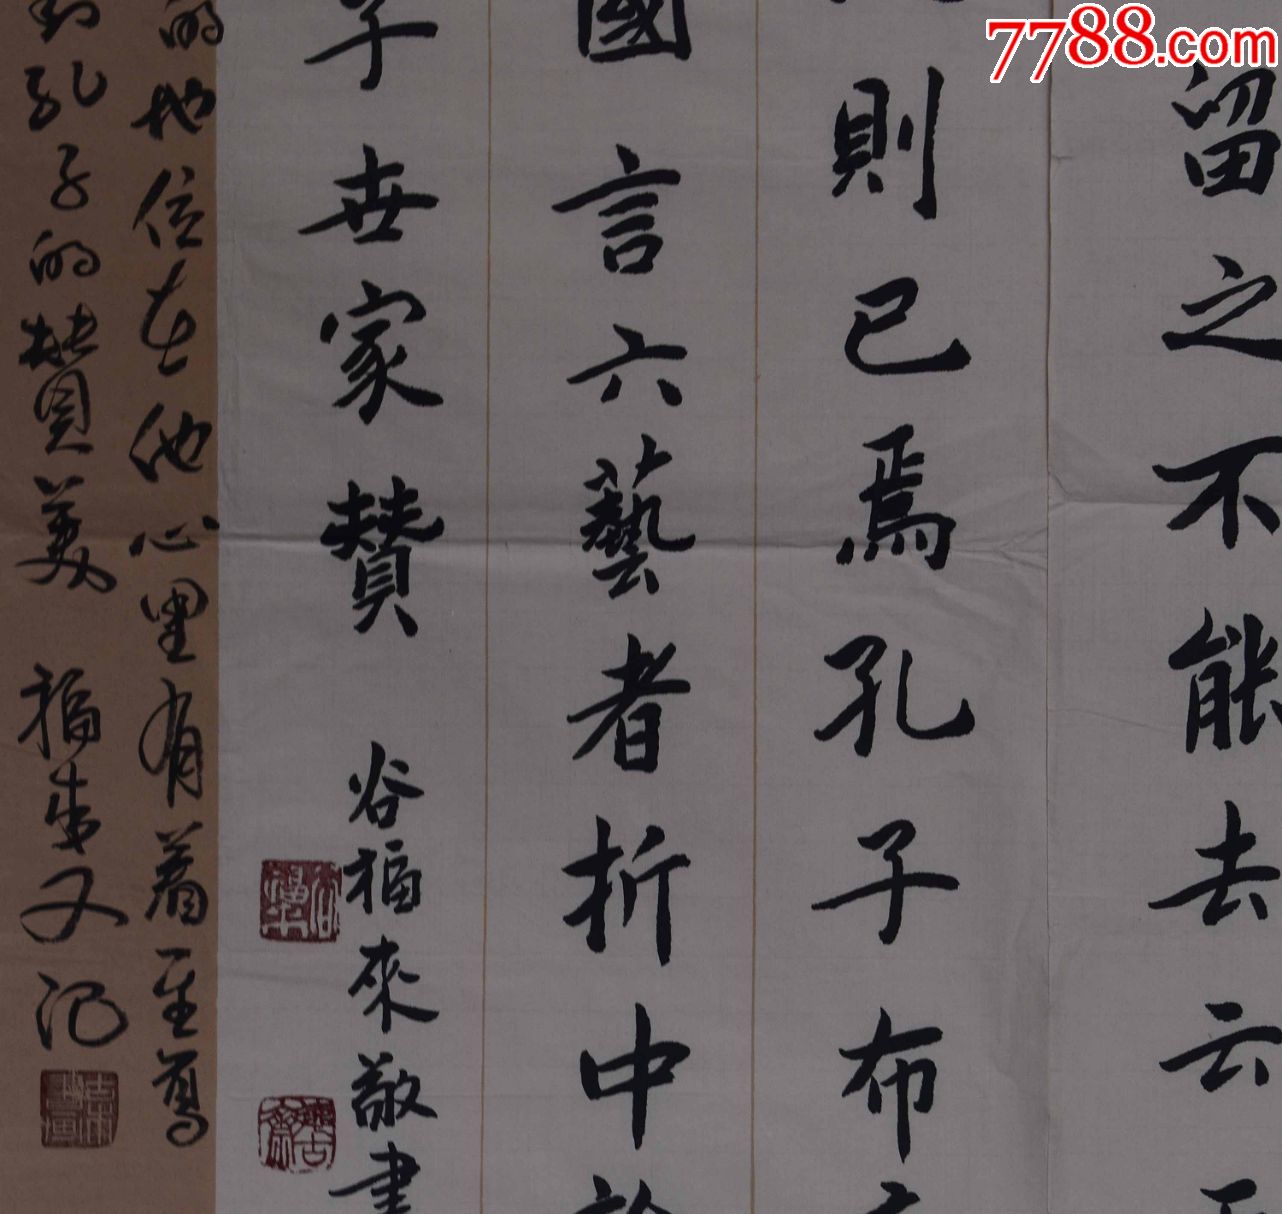 7788.com
留之不能去云天
則已焉孔子布衣
國言六藝者折中於
子世家贊
谷福來敬書
的地位在他心里有着至尊
對孔子的赞美 福来又记